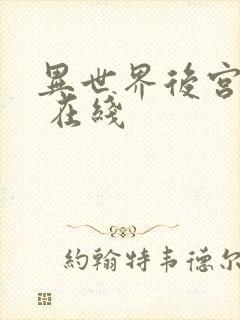 異世界後宮
在綫
約翰特韦德尔